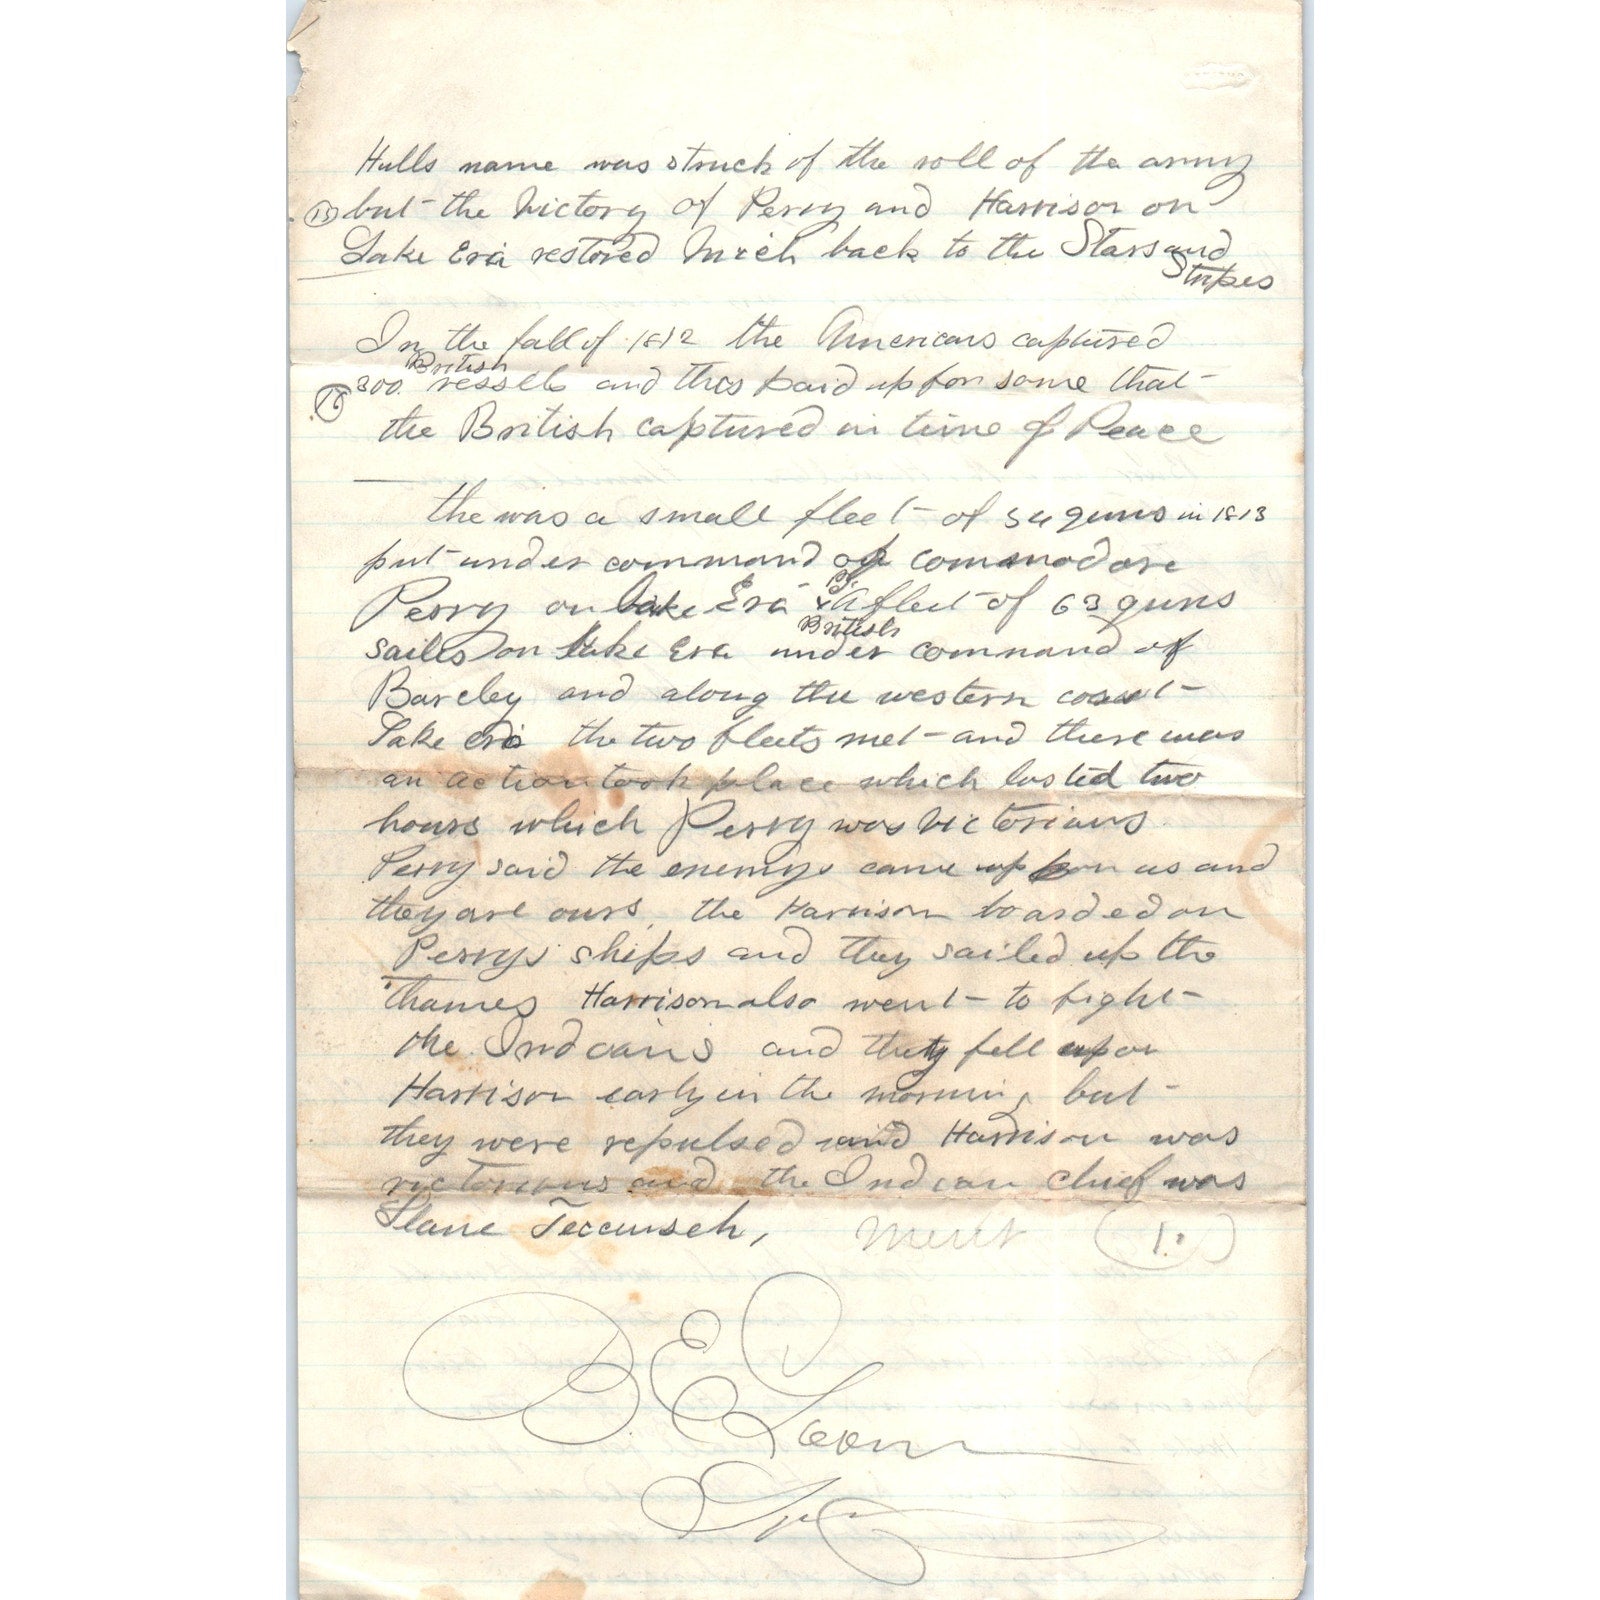 Hulls name was struck of the roll of the army
(15) but the Victory of Perry and Harrison on
Lake Eria restored Mich back to the Stars and
Stripes
In the fall of 1812 the Americans captured
British
(16) 300 vessells and this paid up for some that
the British captured in time of Peace
the was a small fleet of 54 guns in 1813
put under command of commodore
Perry on lake Eria & A fleet of 63 guns
British
sailes on lake Era under command of
Barcley and along the western coast
Lake eria the two fleets met and there was
an action took place which lasted two
hours which Perry was Victorious
Perry said the enemys came upon us and
they are ours, the Harrison boarded on
Perrys ships and they sailed up the
Thames Harrison also went to fight
the Indians and they fell upon
Harrison early in the morning but
they were repulsed and Harrison was
victorious and the Indian chief was
Slane Teccumseh,
Merit (1.)
B E Loom